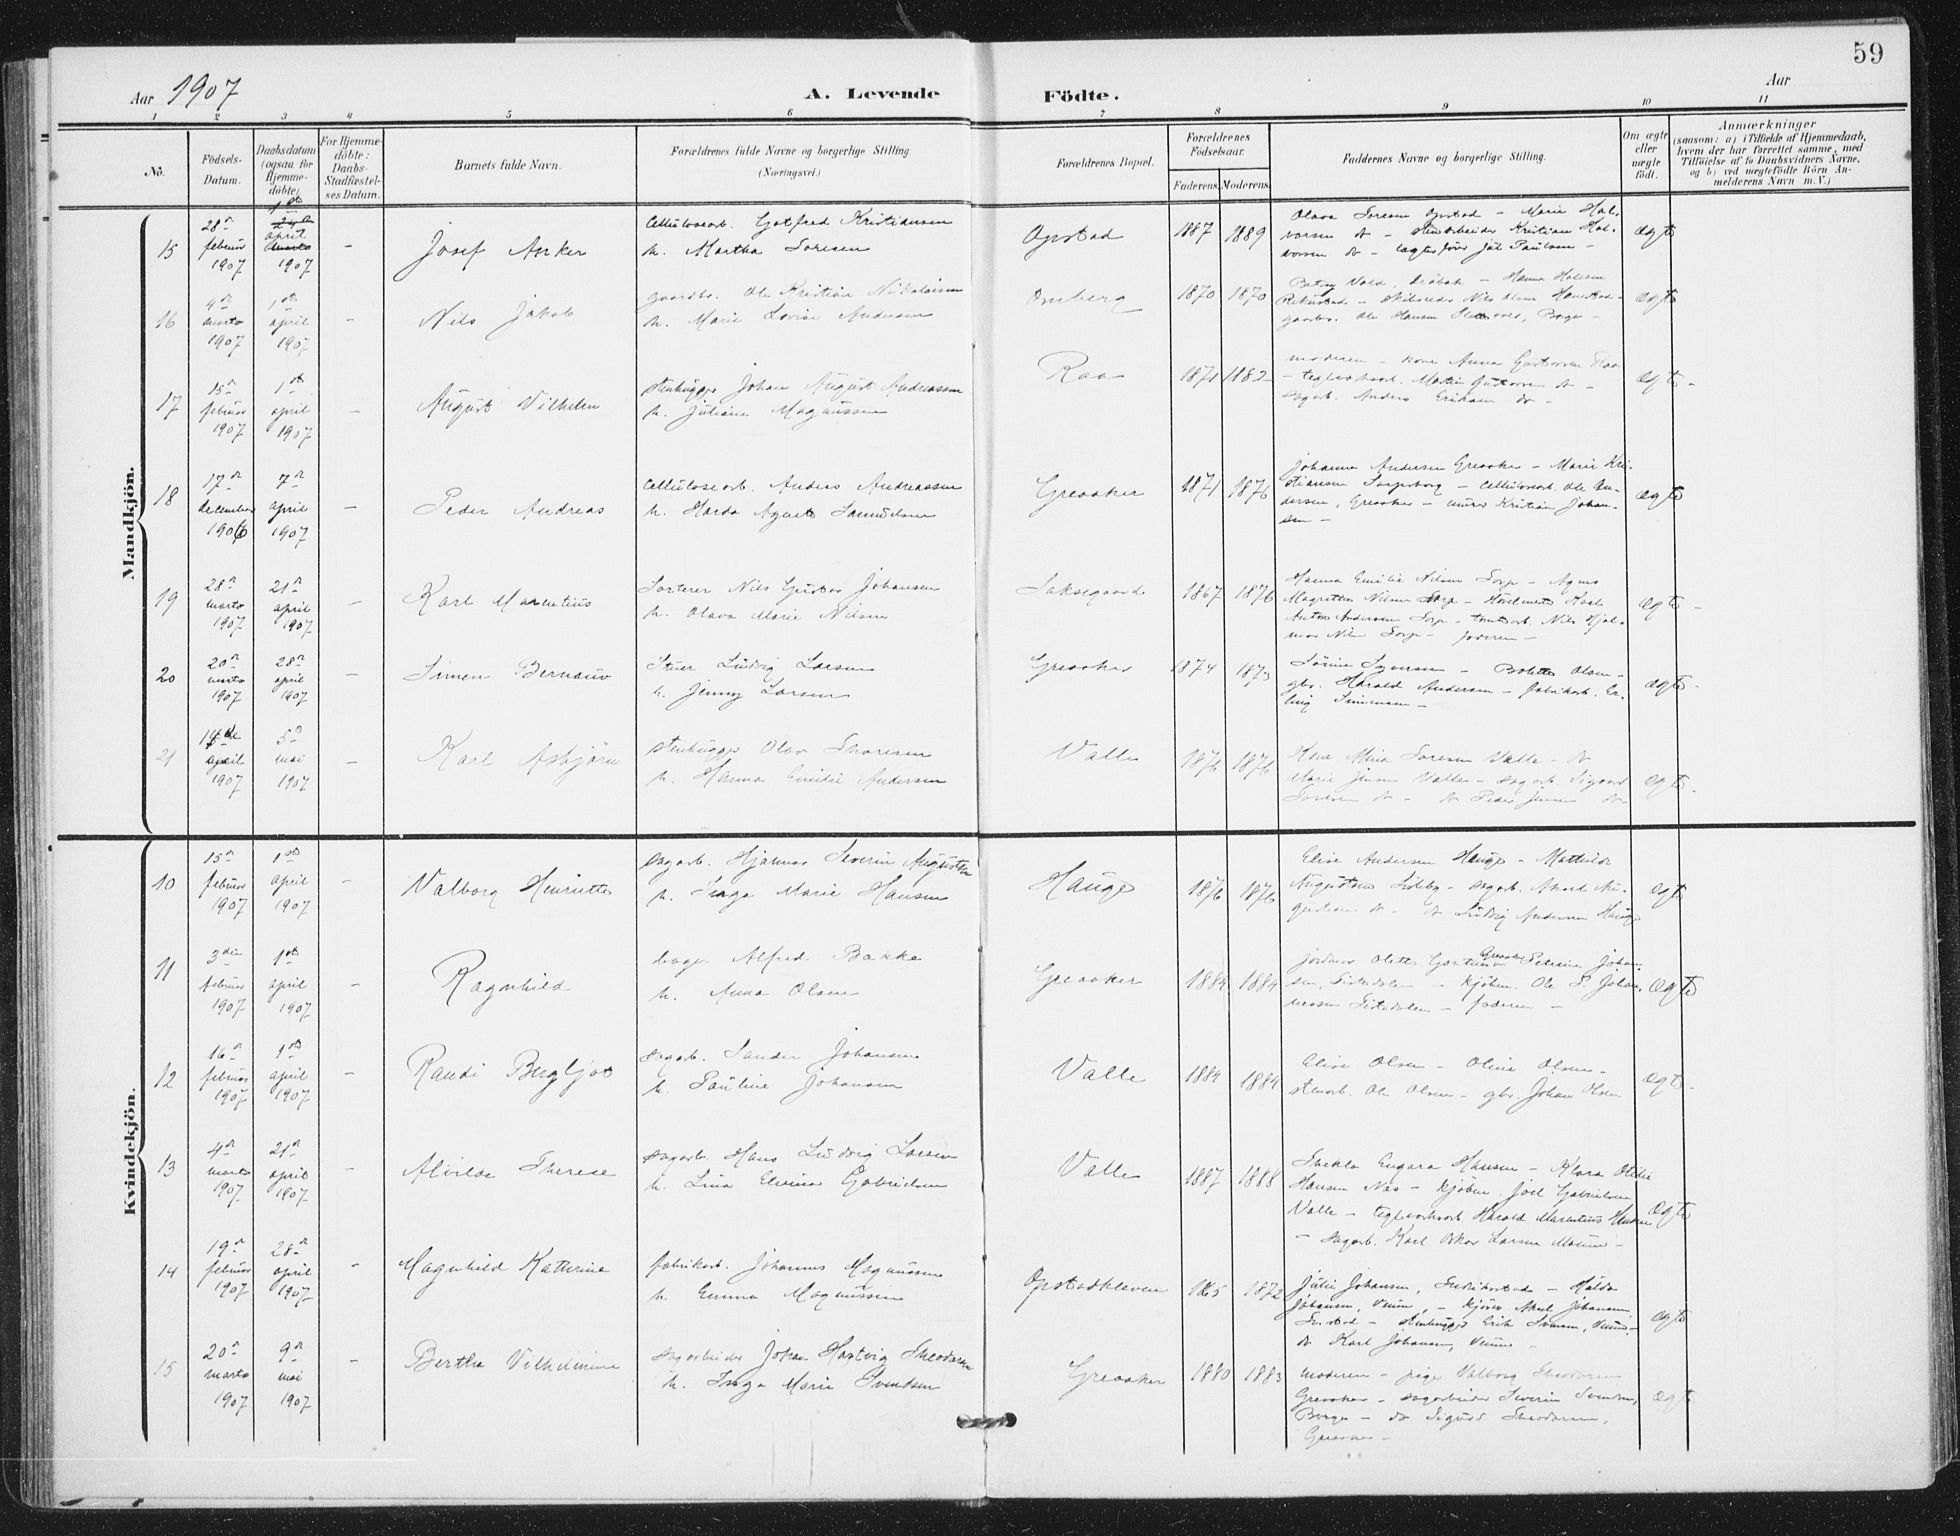 59
Aar 1907
A. Levende Födte.
Aar
1 2 3 4 5 6 7 8 9 10 11
No.
Födsels-Datum.
Daabsdatum (ogsaa for Hjemmedöbte)
For Hjemmedöbte: Daabs-Stadfæstelses Datum.
Barnets fulde Navn.
Forældrenes fulde Navne og borgerlige Stilling (Næringsvei.)
Forældrenes Bopæl.
Forældrenes Födselsaar.
Faderens. Moderens.
Faddernes Navne og borgerlige Stilling.
Om ægte eller uægte födt.
Anmærkninger
(saasom: a) i Tilfælde af Hjemmedaab, hvem der har forrettet samme, med Tilföielse af to Daabsvidners Navne, og b) ved uægtefödte Börn Anmelderens Navn m.V.)
Mandkjön.
15 28de februar 1907 1ste april 1907 - Josef Anker
Celluloseab. Gotfred Kristiansen
h. Martha Soresen
Opstad 1887 1889
Olava Soresen Opstad - Marie Hal-
vorsen do - stenarbeider Kristian Hal-
vorsen do - Joël Paulsen -
ægte
16 4de marts 1907 1ste april 1907 - Nils Jakob
gaardbr. Ole Kristian Nikolaisen
h. Marie Lovise Andersen
Omberg 1870 1870
Hanna
Nils Olsen
gaardbr. Ole Hansen Borge -
ægte
17 15de februar 1907 1ste april 1907 - August Vilhelm
stenhugger Johan August Andreassen
h. Juliane Magnussen
Raa 1871 1882
moderen - kone Anna Gustavsen Raa
- teglverksarb. Martin Gustavsen do -
sagarb. Anders Eriksen do -
ægte -
18 17de december 1906 7de april 1907 - Peder Andreas
Cellulosearb. Anders Andreassen
h. Harda Agnete Samuelsen
Greaaker 1871 1876
Johanna Andersen Greaaker - Marie Kri-
stiansen Sarpsborg - Cellulosearb. Ole An-
dersen, Greaaker - murer Kristian Johan-
sen -
ægte
19 28de marts 1907 21de april 1907 - Karl Marentius
Sorterer Nils Gustav Johansen
h. Olava Marie Nilsen
Laksegaard 1867 1876
Hanna Emilie Nilsen Sorp - Agnes
Magrethe Nilsen Sorp - Karl
Anton Andersen Sorp - tomtearb. Nils Hjal-
mar Nilsen Sorp - faderen -
ægte -
20 20de marts 1907 28de april 1907 - Simen Bernauv
Stuer Ludvig Larsen
h. Jenny Larsen
Greaaker 1874 1873
Sörine Syversen - Bolette Olsen -
gbr. Harald Andersen - fabrikarb. Er-
ling Simensen -
ægte -
21 14de april 1907 5te mai 1907 - Karl Asbjörn
stenhugger Olav Thoresen
h. Hanna Emilie Andersen
Valle 1876 1876
Kone Mina Soresen Valle - do
Marie Jensen Valle - sagarb. Sigvard
Soresen do - do Peder Jensen do -
ægte -
Kvindekjön.
10 15de februar 1907 1ste april 1907 - Valborg Henriette
sagarb. Hjalmar Severin Augustsen
h. Inga Marie Hansen
Hauge 1876 1876
Elise Andersen Hauge - Mathilde
Augustsen - sagarb. Au-
gustsen do - do Ludvig Andersen Hauge
ægte
11 3die februar 1907 1ste april 1907 - Ragnhild
bager Alfred Bakke
h. Anna Olsen
Greaaker 1884 1884
jordmor Olette Greaaker Petrine Johan-
sen, - kjöbm. Ole P. Johan-
nessen - faderen -
ægte
12 16de februar 1907 1ste april 1907 - Randi Bergljot
sagarb. Sander Johansen
h. Pauline Johansen
Valle 1884 1884
Elise Olsen - Oline Olsen -
stenarb. Ole Olsen - gbr. Johan Olsen
ægte -
13 4de marts 1907 21de april 1907 - Alvilde Therese
sagarb. Hans Ludvig Larsen
h. Lina Elvina Gabrielsen
Valle 1887 1888
Thekla Hansen - Klara Otilie
Hansen Næs - kjöbm. Joel Gabrielsen
Valle - teglverksarb. Harald Marentius Hansen
- sagarb. Karl Oskar Larsen Moum -
ægte
14 19de februar 1907 28de april 1907 - Magnhild Katherine
fabrikarb. Johannes Magnussen
h. Emma Magnussen
Opstadkleven 1865 1872
Julie Johansen, Fredrikstad - Hulda
Johansen, Venne, - kjörer Aksel Johansen,
Fr.stad - stenhugger Erik Svensen, Venne,
do Karl Johansen, Venne -
ægte
15 20de marts 1907 9de mai 1907 - Bertha Vilhelmine
Sagarbeider Johan Hartvig Theodorsen
h. Inga Marie Svendsen
Greaaker 1880 1883
moderen - pige Valborg Theodorsen
Greaaker - sagarbeider Severin Svendsen,
Borge - do Sigurd Theodorsen,
Greaaker -
ægte